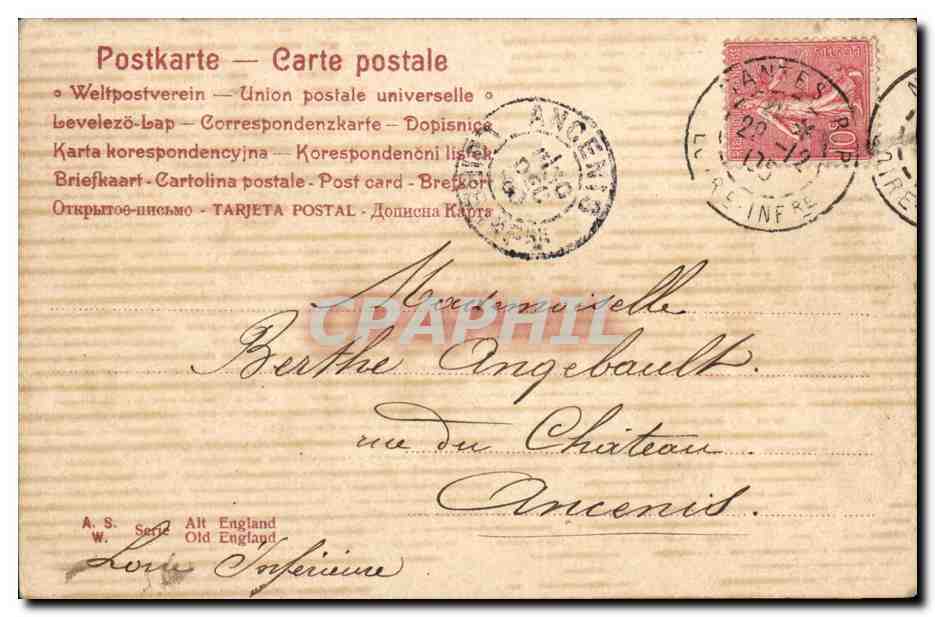 Postkarte — Carte postale
° Weltpostverein — Union postale universelle °
Levelező-Lap — Correspondenzkarte — Dopisnice
Karta korespondencyjna — Korespondenčni listek
Briefkaart - Cartolina postale - Post card - Brefkort
Открытое-письмо - TARJETA POSTAL - Дописна Карта
ANCENIS
NANTES R.P.
29 -12
05
LOIRE-INFRE
10
CPAPHIL
Mademoiselle
Berthe Angebault.
rue du Château
Ancenis.
A. S. W. Serie Alt England
Old England
Loire Inférieure